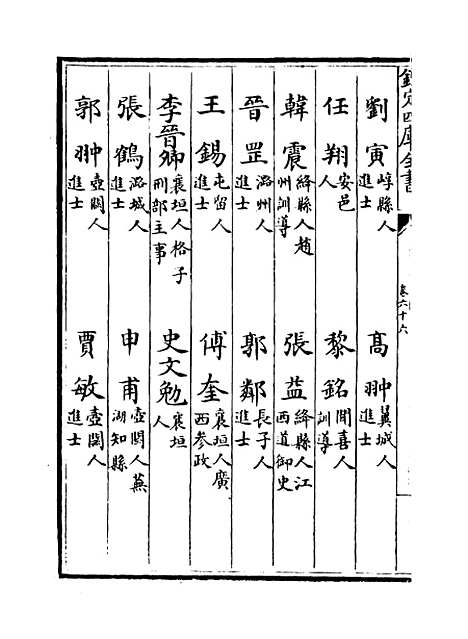 欽定四庫全書
卷六十六
劉寅 崞縣人進士
高翀 翼城人進士
任翔 安邑人
黎銘 聞喜人訓導
韓震 絳縣人趙州訓導
張益 絳縣人江西道御史
晉罡 潞州人進士
郭鄰 長子人進士
王錫 屯留人進士
傅奎 襄垣人廣西參政
李晉卿 襄垣人格子刑部主事
史文勉 襄垣人
張鶴 潞城人進士
申甫 壺關人蕪湖知縣
郭翀 壺關人進士
賈敏 壺關人進士